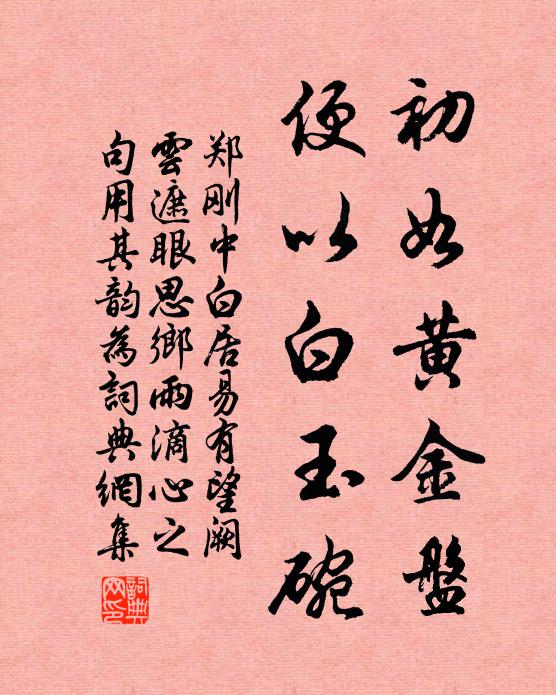 初如黄金盤
便以白玉碗
郑刚中白居易有望阙
雲遮眼思鄉雨滴心之
句用其韵為詞典網集
詞典网印